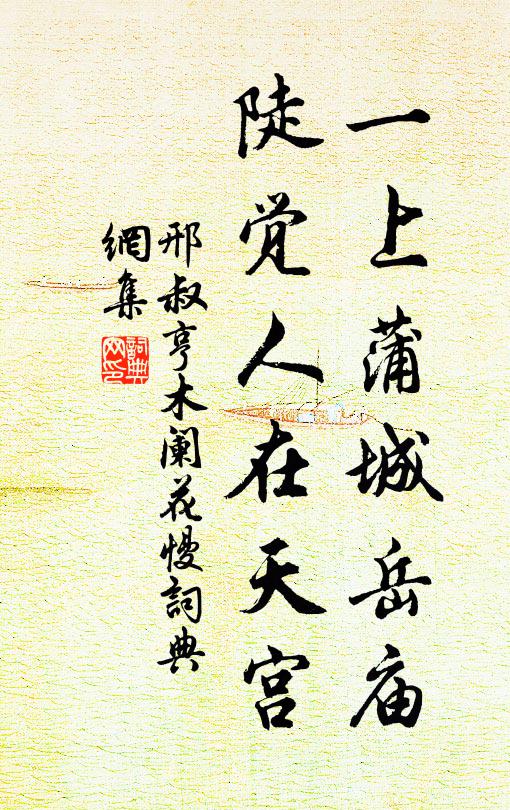 一上蒲城岳庙
陡觉人在天宫
邢叔亨木阑花慢詞典
網集
詞典
网印